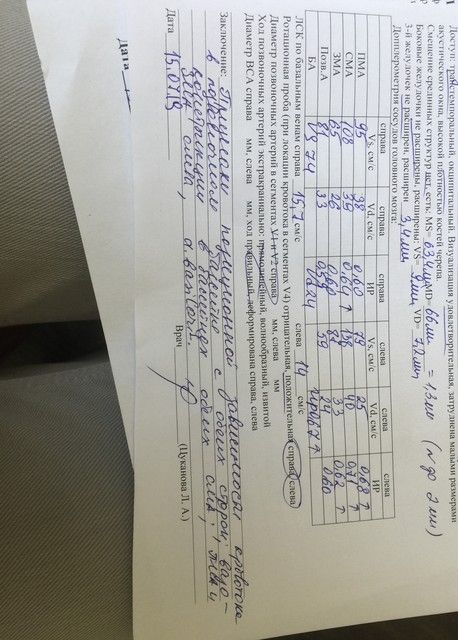 Доступ: транстемпоральный, окципитальный. Визуализация удовлетворительная, затруднена малыми размерами
акустического окна, высокой плотностью костей черепа.
Смещение срединных структур нет, есть: MS= 63,4мм MD= 66мм = 1,3мм (N до 2мм)
Боковые желудочки не расширены, расширены: VS= 7мм, VD= 7,2мм,
3-й желудочек не расширен, расширен 3,4мм
Допплерометрия сосудов головного мозга:
справа справа справа слева слева слева
Vs, см/с Vd, см/с ИР Vs, см/с Vd, см/с ИР
ПМА 95 38 0,60 79 25 0,68↑
СМА 108 39 0,64↑ 138 40 0,71↑
ЗМА 65 26 0,60 87 33 0,62↑
Позв.А 81 33 0,59 59 24 0,60
БА Vs 74 Vd 24
ЛСК по базальным венам справа 15,7 см/с слева 14 см/с
Ротационная проба (при локации кровотока в сегментах V4) отрицательная, положительная справа, слева
Диаметр позвоночных артерий в сегментах V1 и V2 справа мм, слева мм
Ход позвоночных артерий экстракраниально: прямолинейный, волнообразный, извитой
Диаметр ВСА справа мм, слева мм, ход правильный, деформирована справа, слева
Заключение: Признаки позиционной зависимости кровотока
в позвоночной с обеих сторон,
в бассейнах обеих СМА, ПМА и
ЗМА слева, a.basilaris.
Дата 15.07.19 Врач (Цуканова Л. А.)
Дата